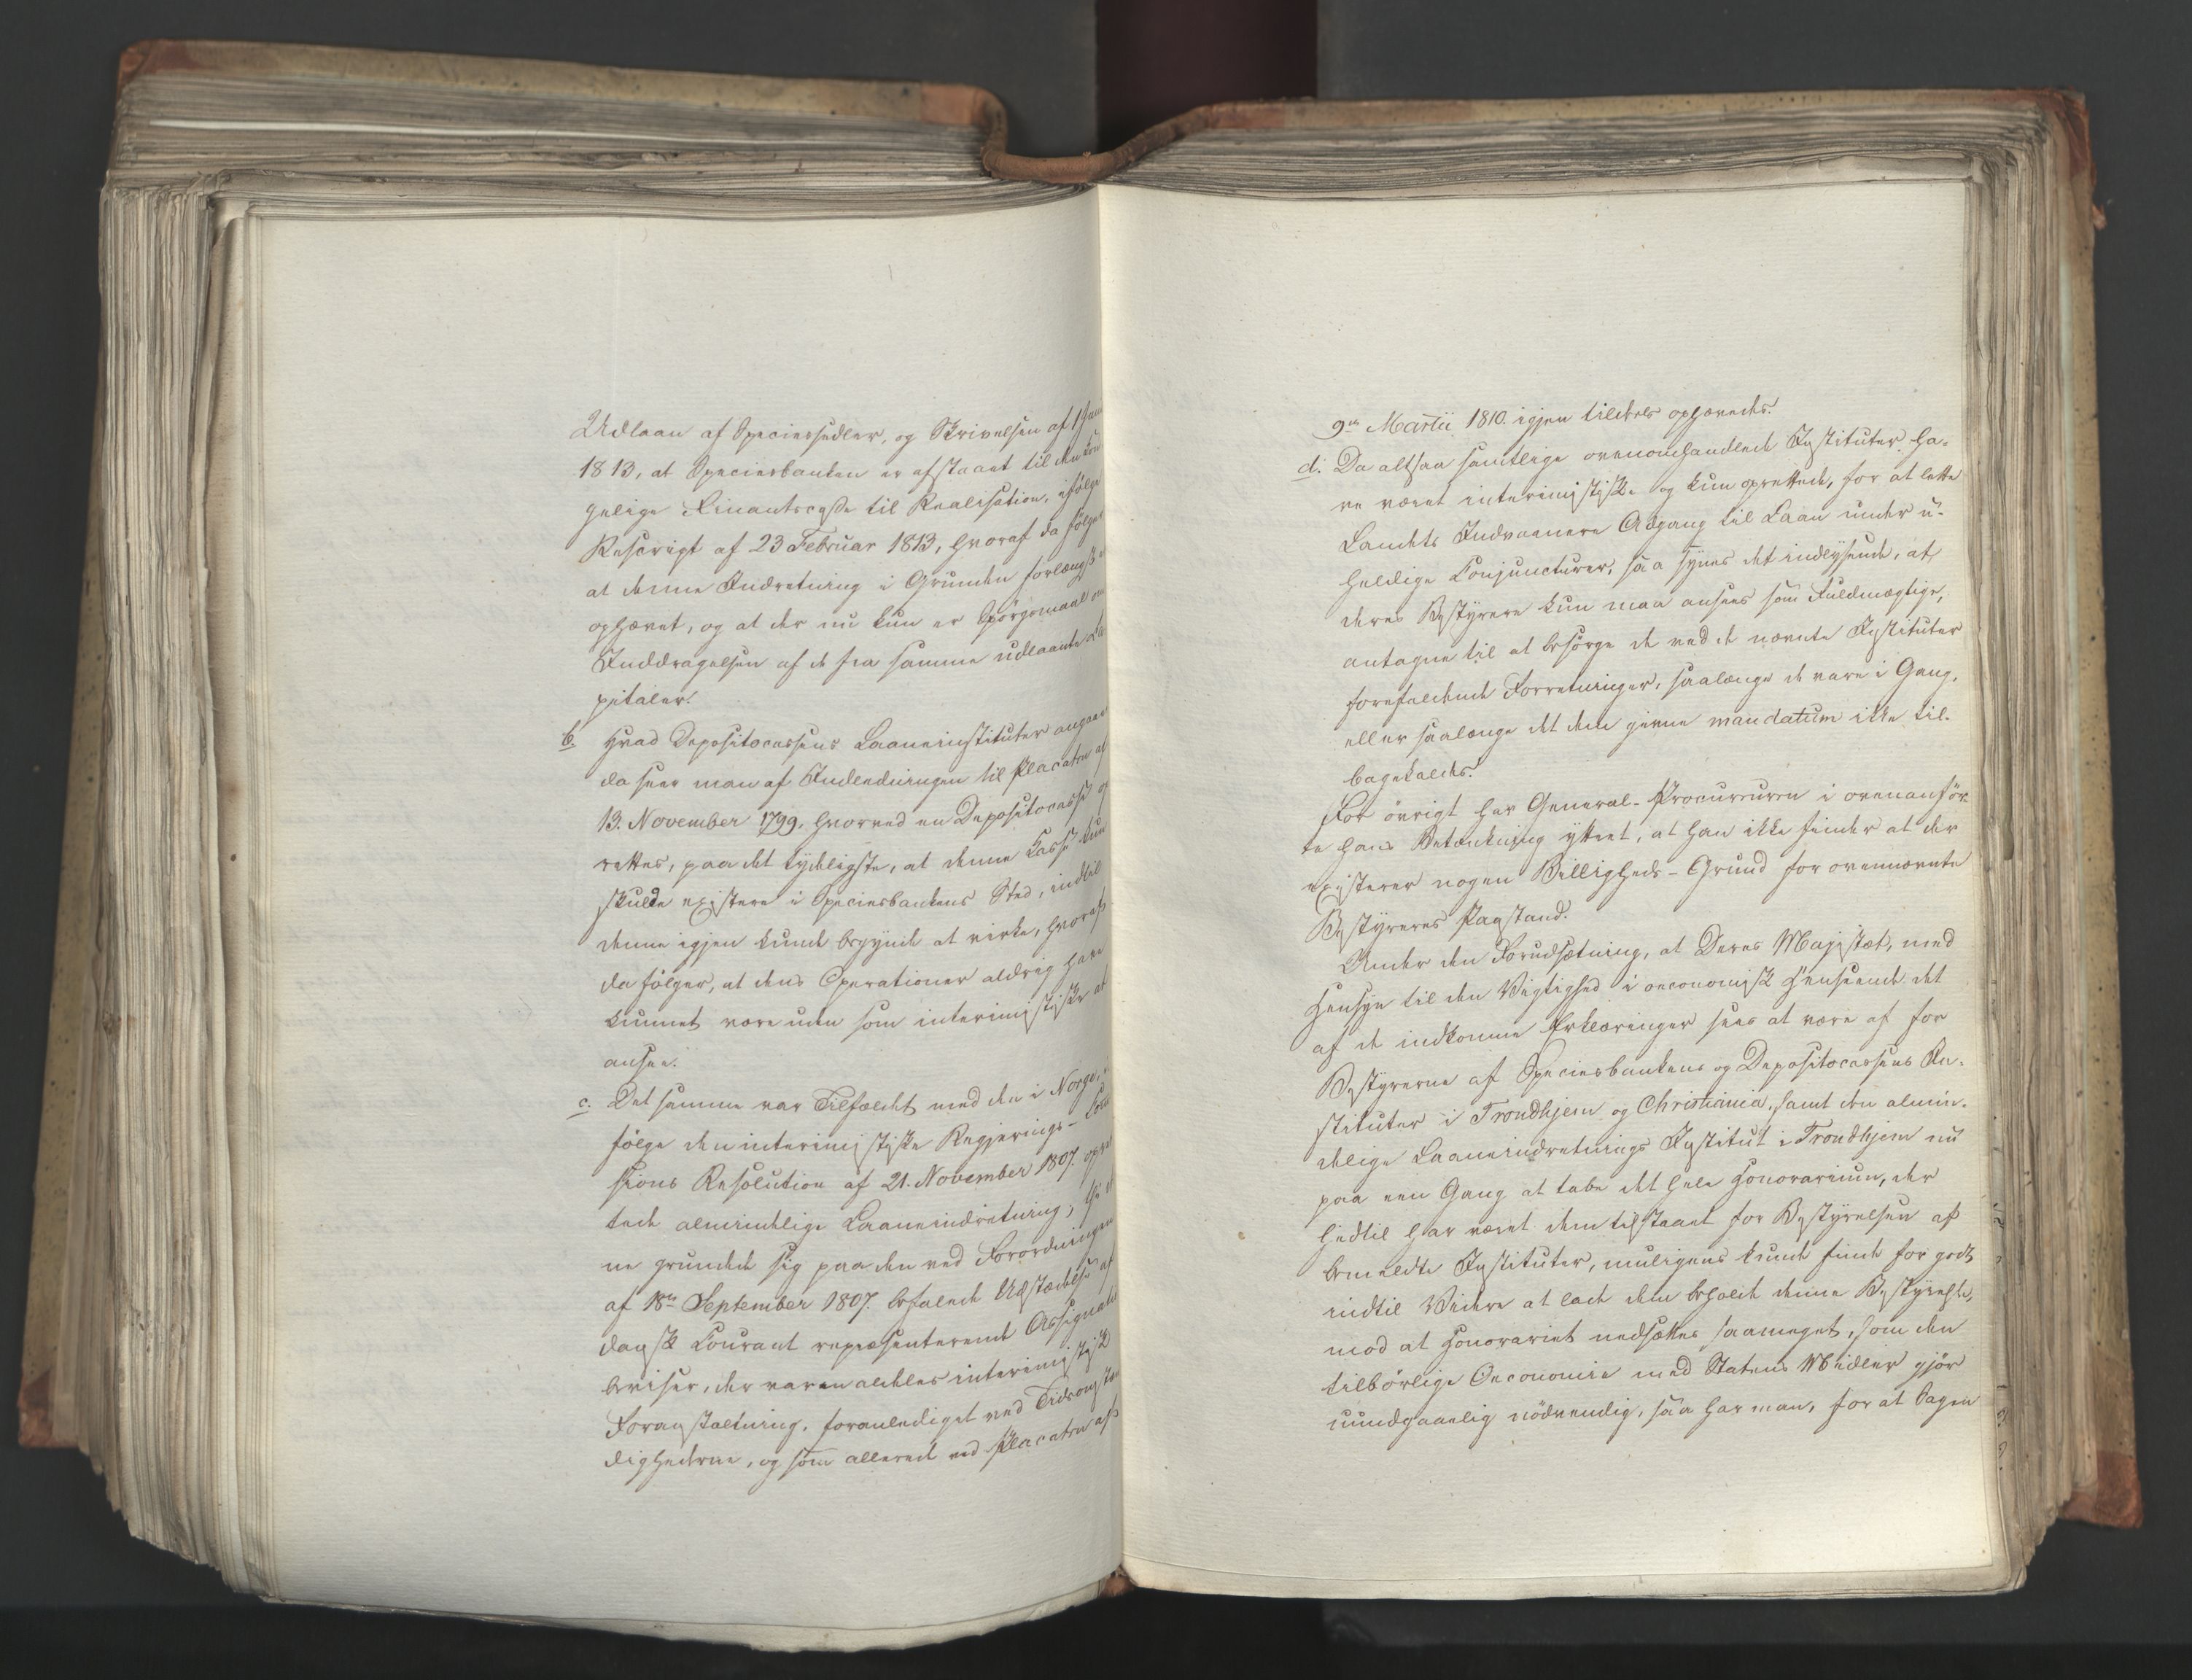 Udlaan af Speciessedler, og Skrivelsen af 1 Juni
1813, at Speciesbanken er afstaaet til den kon-
gelige Finantscasse til Realisation, ifølge
Rescript af 23 Februar 1813, hvoraf da følger
at denne Indretning i Grunden forlængst er
ophævet, og at der nu kun er Spörgsmaal om
Inddragelsen af de fra samme udlaante Ca-
pitaler.
b. Hvad Depositocassens Laaneinstituter angaaer
da seer man af Indledningen til Placaten af
13. November 1799, hvorved en Depositocasse op-
rettes, paa det tydeligste, at denne Casse kun
skulde existere i Speciesbankens Sted, indtil
denne igjen kunde begynde at virke, hvoraf
da følger, at dens Operationer aldrig have
kunnet være uden som interimistiske at
ansee.
c. Det samme var Tilfældet med den i Norge, i-
følge den interimistiske Regjerings-Com-
sions Resolution af 21. November 1807. opret-
tede almindelige Laaneindretning; thi den-
ne grundede sig paa den ved Forordningen
af 18de September 1807. befalede Udstædelse af
dansk Courant repræsenterende Assignations-
beviser, der var en aldeles interimistisk
Foranstaltning, foranlediget ved Tidsomstæn-
dighederne, og som allerede ved Placaten af
9de Martii 1810. igjen tildeels ophævedes.
d. Da altsaa samtlige ovenomhandlede Instituter ha-
ve været interimistiske og kun oprettede, for at lette
Landets Indvaanere Adgang til Laan under u-
heldige Conjuncturer, saa synes det indlysende, at
deres Bestyrere kun maa ansees som Fuldmægtige,
antagne til at besørge de ved de nævnte Instituter
forefaldende Forretninger, saalænge de vare i Gang,
eller saalænge det dem givne mandatum ikke til-
bagekaldes.
For övrigt har General-Procureuren i ovenanför-
te hans Betænkning yttret, at han ikke finder at der
existerer nogen Billigheds-Grund for ovennævnte
Bestyreres Paastand.
Under den Forudsætning, at Deres Majestæt, med
Hensyn til den Vigtighed i oeconomisk Henseende det
af de indkomne Erklæringer sees at være af for
Bestyrerne af Speciesbankens og Depositocassens In-
stituter i Trondhjem og Christiania, samt den almin-
delige Laaneindretnings Institut i Trondhjem nu
paa een Gang at tabe det hele Honorarium, der
hidtil har været dem tilstaaet for Bestyrelsen af
bemeldte Instituter, muligens kunde finde for godt,
indtil Videre at lade dem beholde denne Bestyrelse,
mod at Honorariet nedsættes saameget, som den
tilbörlige Oeconomie med Statens Midler gjör
uundgaaelig nödvendig, saa har man, for at bagen